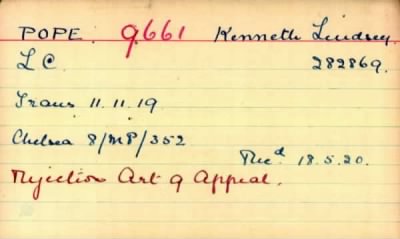 POPE. 9661 Kenneth Lindsey.
L C. 282869.
Trans 11.11.19.
Chelsea 8/MP/352
Rec<sup>d</sup> 18.5.20.
Rejection Art 9 Appeal.